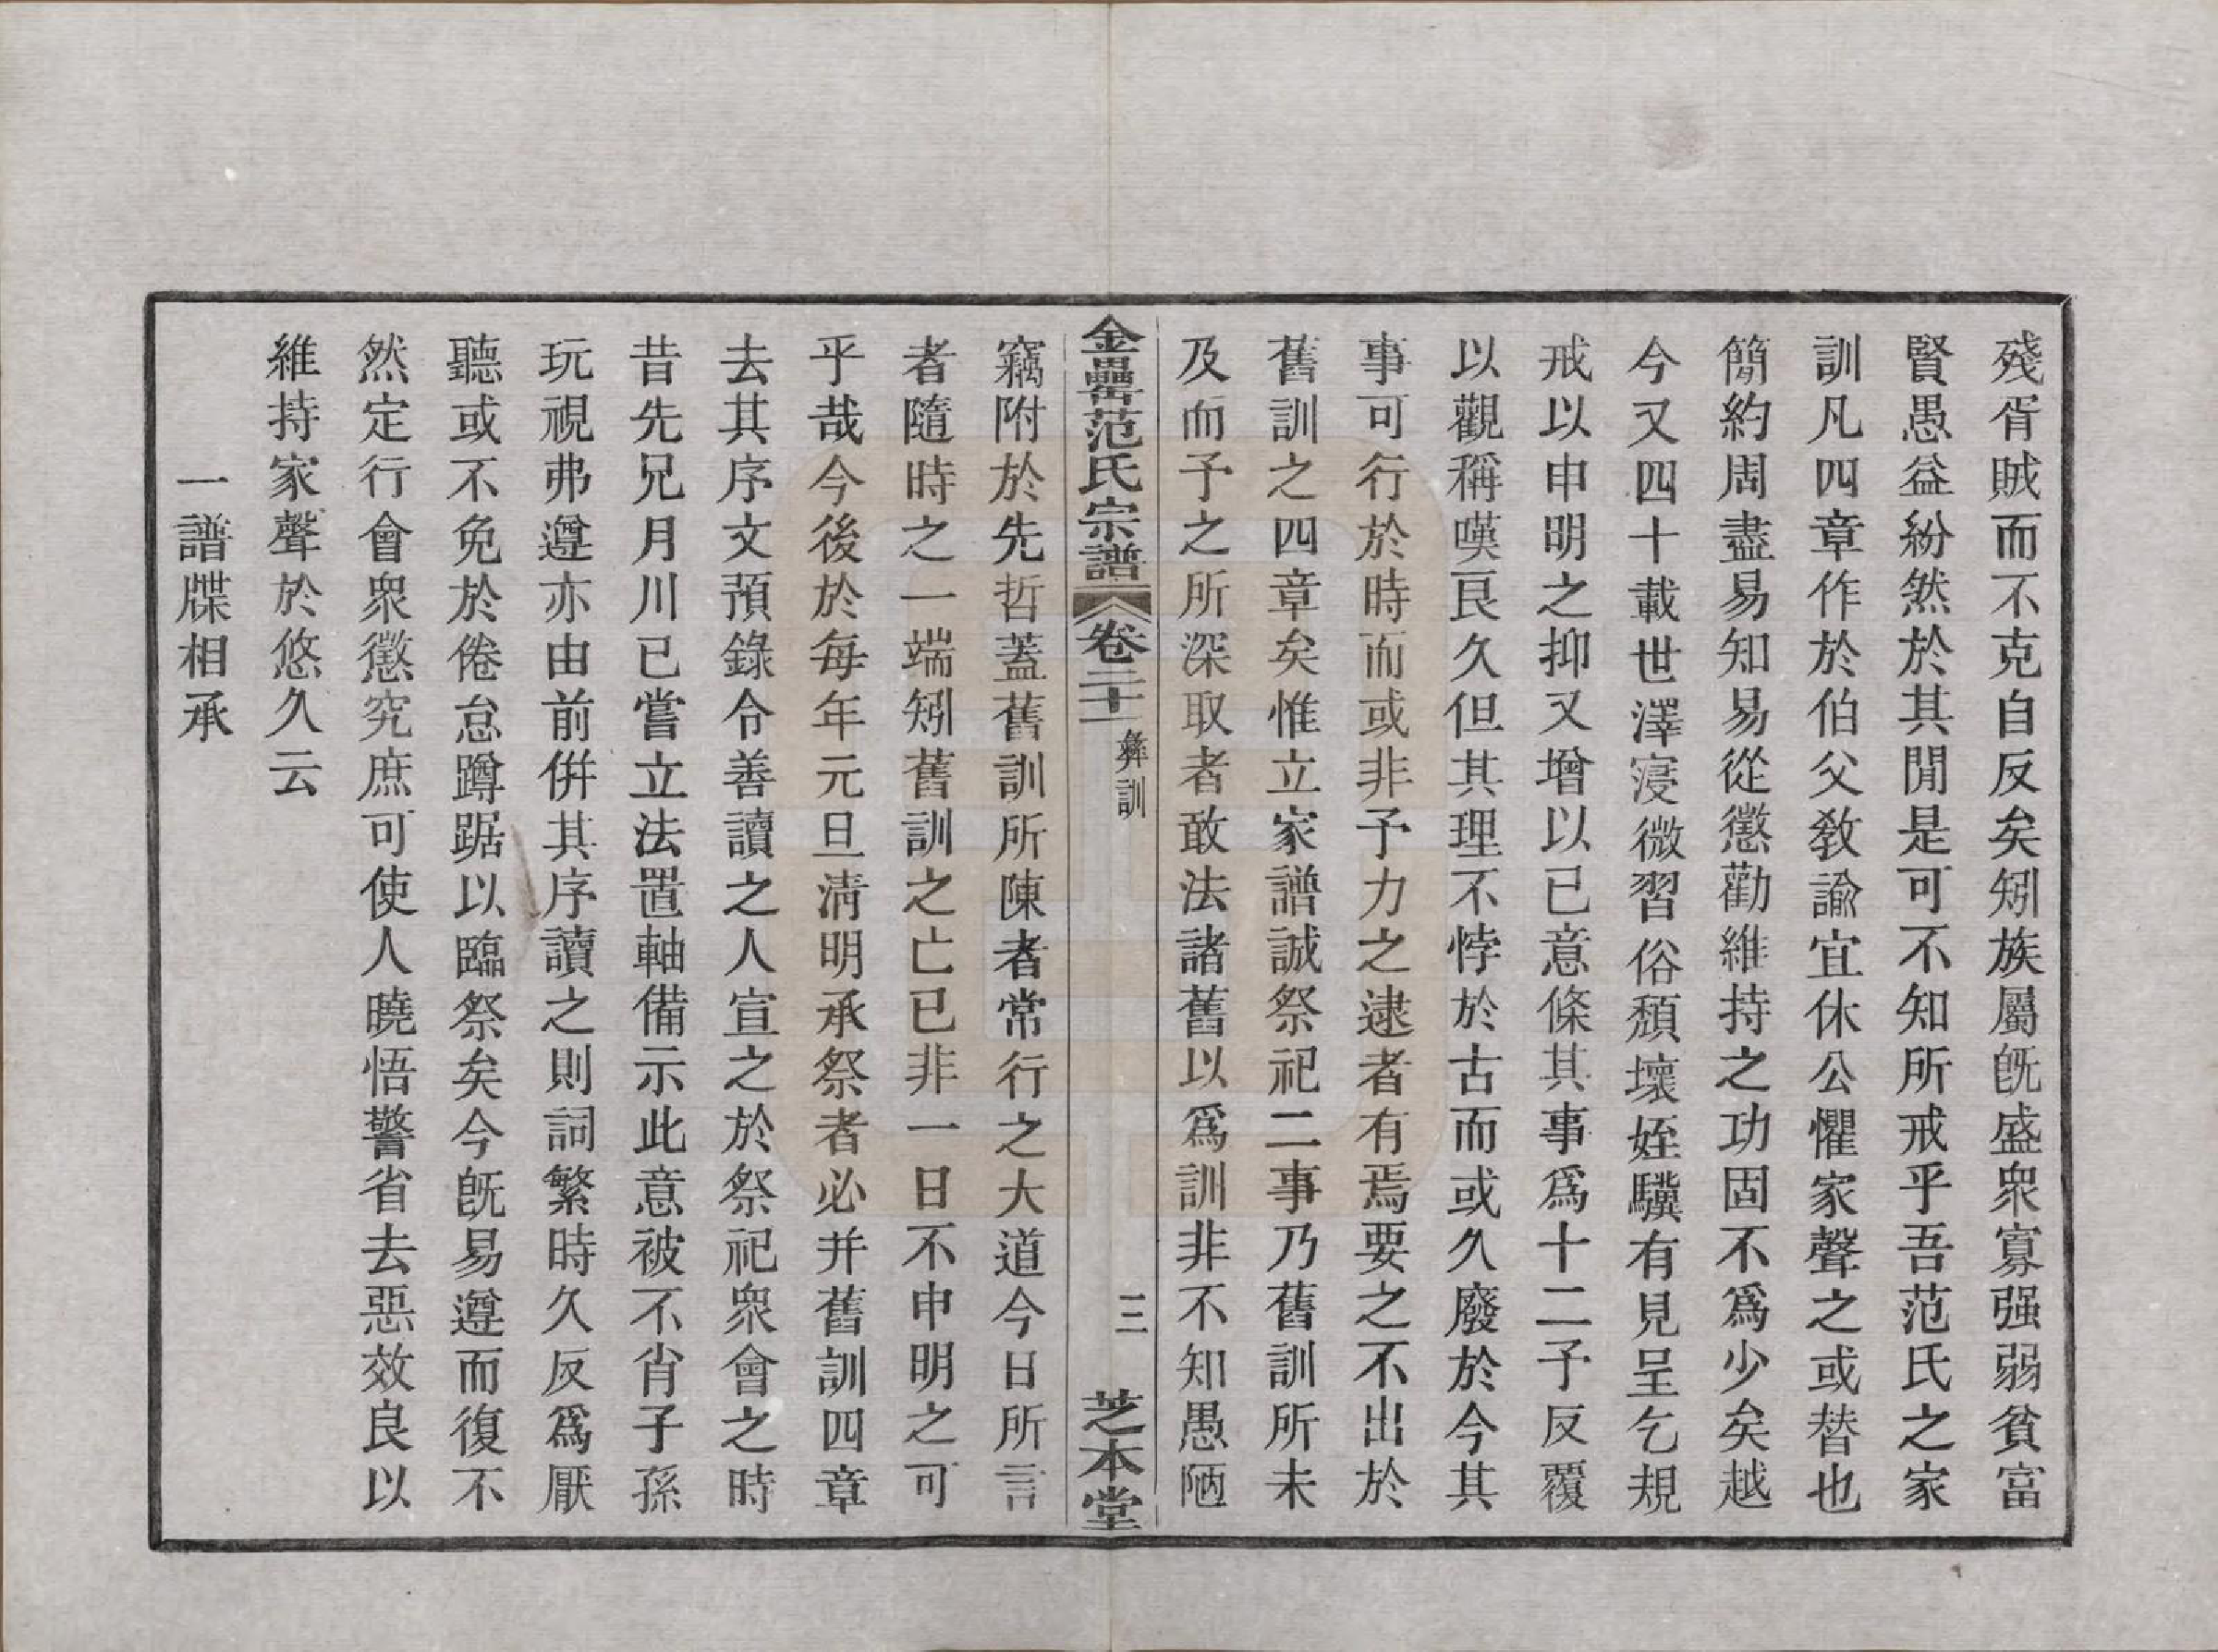 殘胥賊而不克自反矣矧族屬旣盛衆寡强弱貧富
賢愚益紛然於其閒是可不知所戒乎吾范氏之家
訓凡四章作於伯父敎諭宜休公懼家聲之或替也
簡約周盡易知易從懲勸維持之功固不爲少矣越
今又四十載世澤寖微習俗頹壞姪驥有見呈乞規
戒以申明之抑又增以已意條其事爲十二予反覆
以觀稱嘆良久但其理不悖於古而或久廢於今其
事可行於時而或非予力之逮者有焉要之不出於
舊訓之四章矣惟立家譜誠祭祀二事乃舊訓所未
及而予之所深取者敢法諸舊以爲訓非不知愚陋
金罍范氏宗譜 卷二十一 彝訓 三 芝本堂
竊附於先哲蓋舊訓所陳者常行之大道今日所言
者隨時之一端矧舊訓之亡已非一日不申明之可
乎哉今後於每年元旦淸明承祭者必并舊訓四章
去其序文預錄令善讀之人宣之於祭祀衆會之時
昔先兄月川已嘗立法置軸備示此意被不肖子孫
玩視弗遵亦由前倂其序讀之則詞繁時久反爲厭
聽或不免於倦怠蹲踞以臨祭矣今旣易遵而復不
然定行會衆懲究庶可使人曉悟警省去惡效良以
維持家聲於悠久云
一譜牒相承